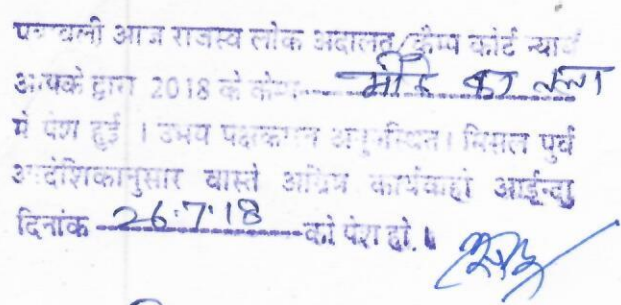 पत्रावली आज राजस्व लोक अदालत/कैम्प कोर्ट न्याय
आपके द्वारा 2018 के कैम्प
में पेश हुई । उभय पक्षकारान अनुपस्थित। मिसल पुर्व
आदेशिकानुसार वास्ते अग्रिम कार्यवाही आईन्दा
दिनांक 26.7.18 को पेश हो.